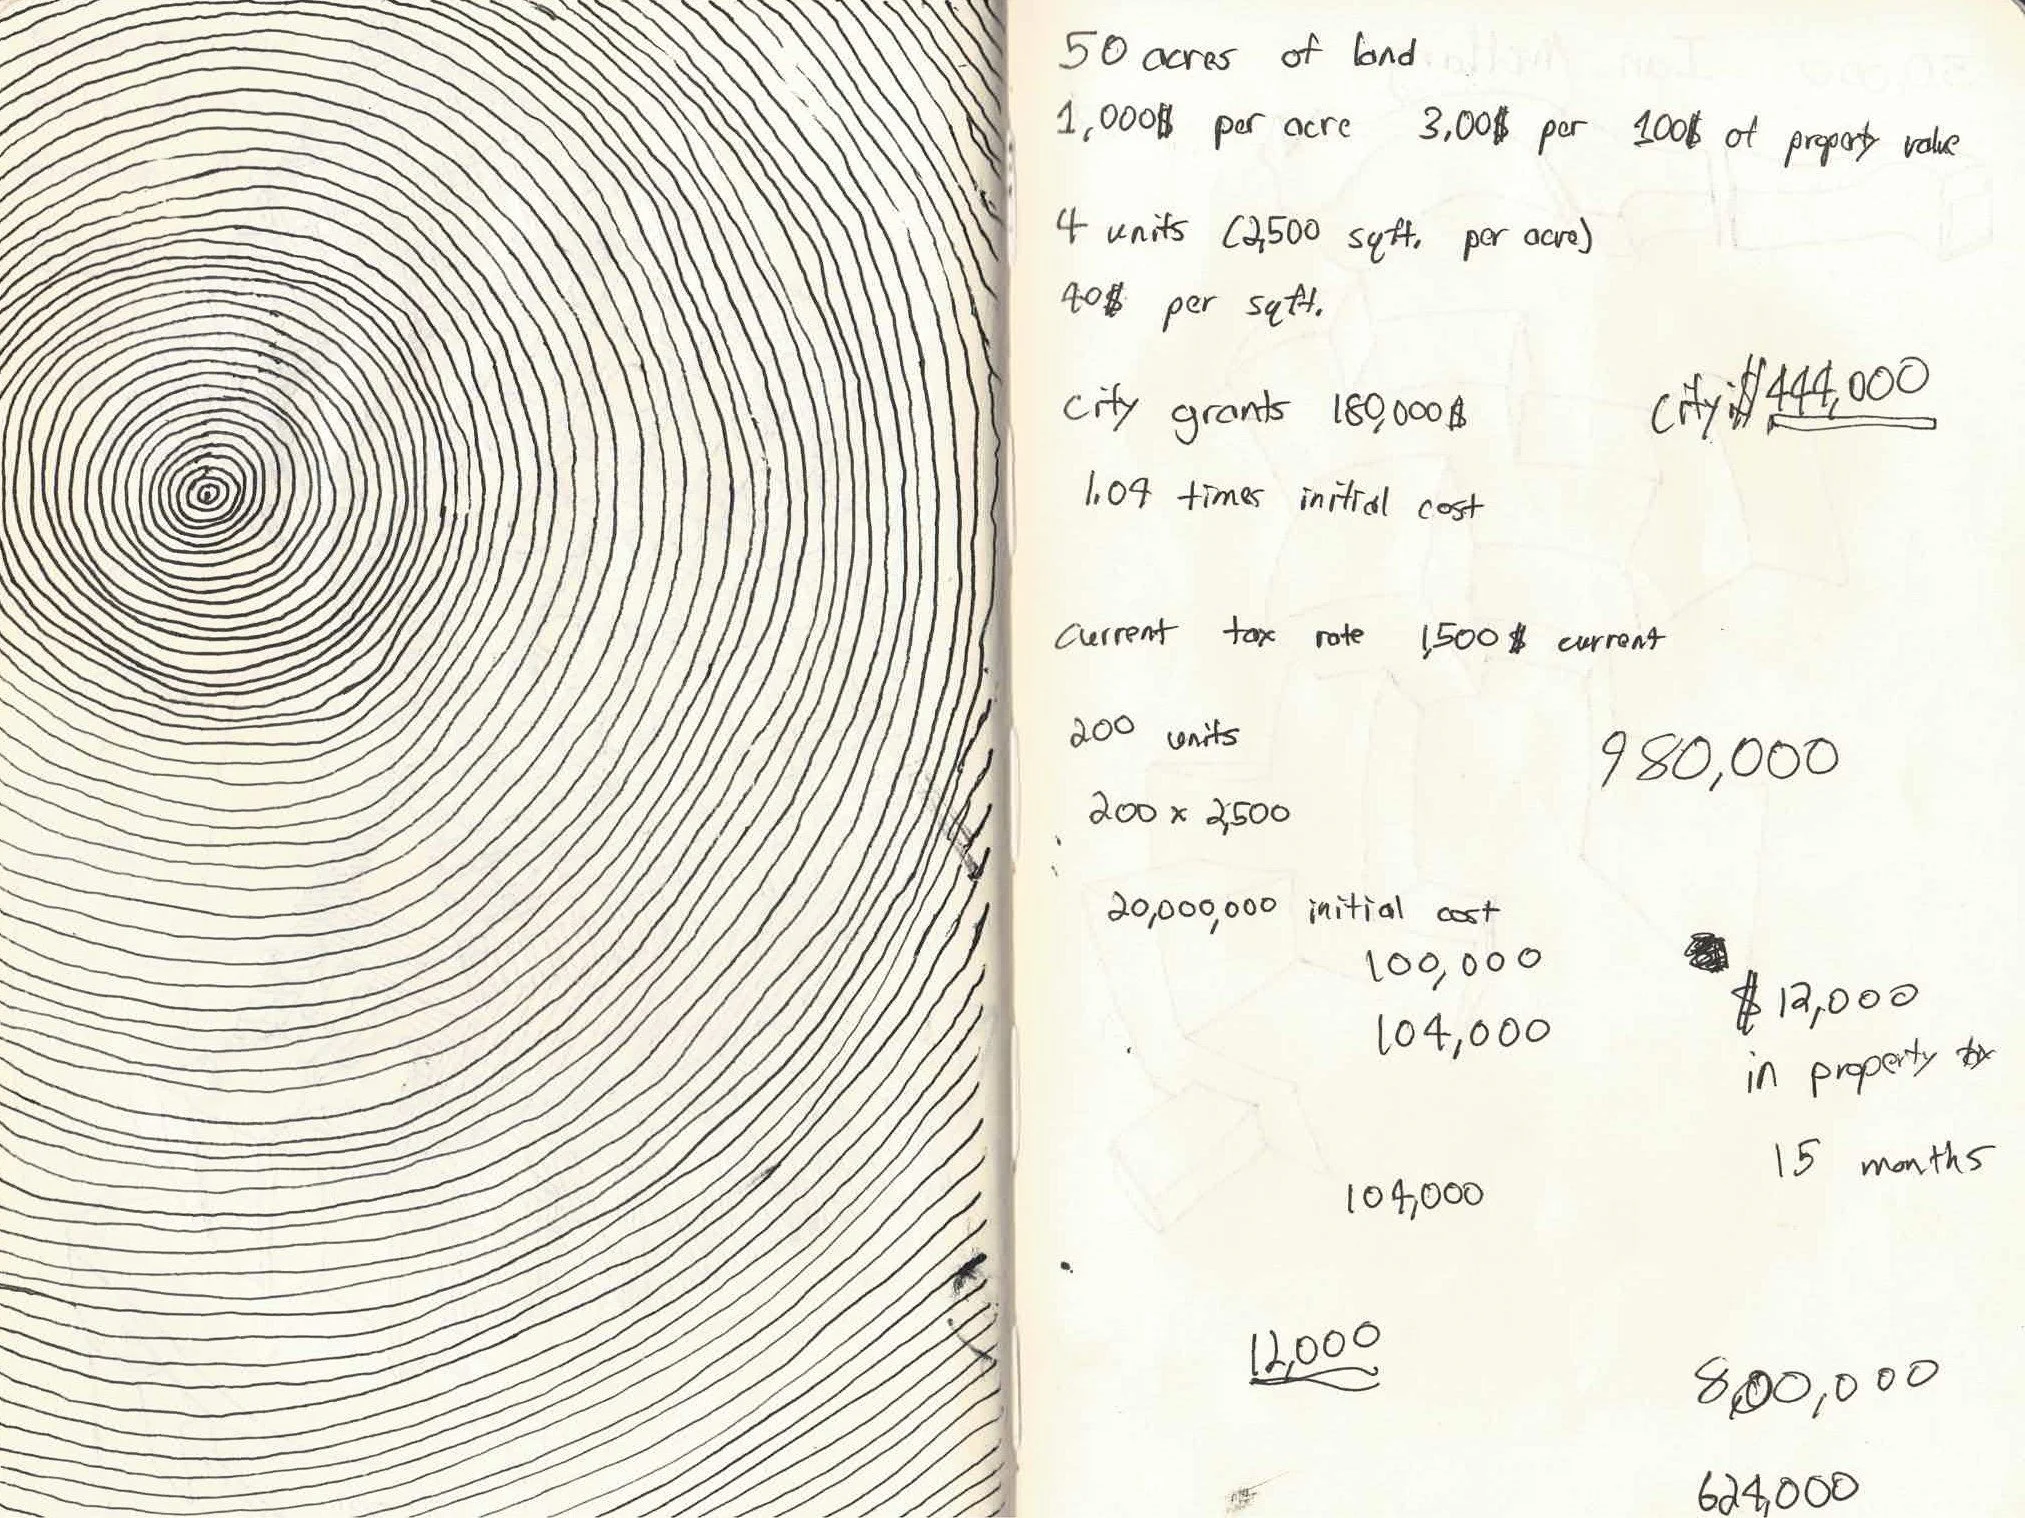 50 acres of land
1,000$ per acre 3,00$ per 100$ of property value
4 units (2,500 sqft. per acre)
40$ per sqft.
city grants 180,000$
city: $444,000
1.04 times initial cost
current tax rate 1,500$ current
200 units
980,000
200 x 2,500
20,000,000 initial cost
100,000
104,000
$12,000
in property tax
15 months
104,000
12,000
800,000
624,000